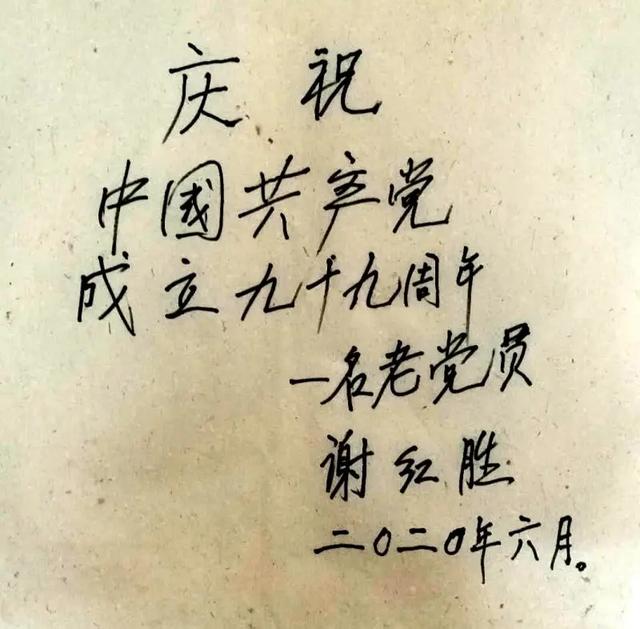 庆祝
中國共产党
成立九十九周年
一名老党员
谢红胜
二〇二〇年六月。